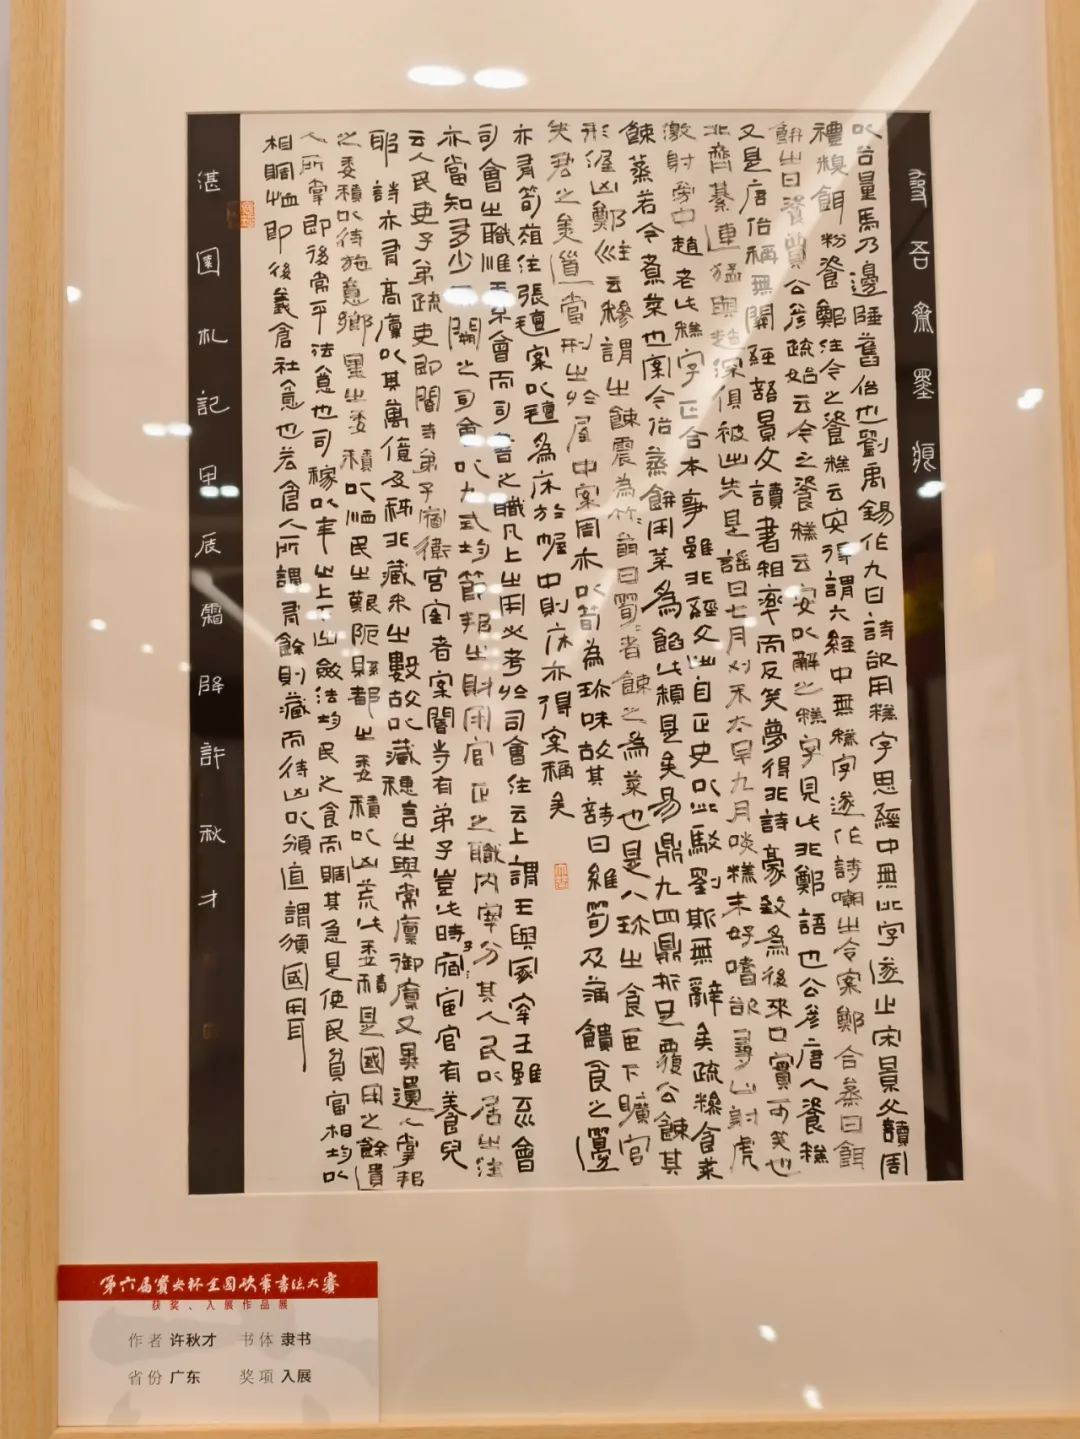 吾齋墨
以谷量馬乃邊陲舊俗也劉禹錫作九日詩欲用糕字思經中無此字遂止宋景文讀周
禮糗餌粉餈鄭注今之餈糕云安得謂六經中無糕字遂作詩嘲之今案鄭合蒸曰餌
餅之曰餈賈公彦疏始云今之餈糕云安以解之糕字見此非鄭語也公彦唐人餈糕
又是唐俗稱無關經語景文讀書粗率而反笑夢得非詩豪致為後來口實可笑也
北齊綦連猛與趙深俱被出先是謠曰七月刈禾太早九月啖糕未好嗜欲尋山射虎
激射旁中趙老此糕字正合本事雖非經文出自正史以此駁劉斯無辭矣疏糝食菜
餗蒸若今煮菜也案今俗蒸餅用菜為餡此類是矣易鼎九四鼎折足覆公餗其
形渥凶鄭注云糝謂之餗震為竹竹萌曰筍筍者餗之為菜也是八珍之食臣下曠官
失君之美道當刑之於屋中案周亦以筍為珍味故其詩曰維筍及蒲饋食之籩
亦有筍菹注張氊案以氊為床於幄中則床亦得案稱矣
司會之職惟王不會而司書之職凡上之用必考於司會注云上謂王與冢宰王雖不會
亦當知多少而闕之司會以九式均節邦之財用官正之職内宰分其人民以居之注
云人民吏子弟疏吏即閽寺弟子宿衛宮室者案閽寺有弟子豈此時宿宦官有養兒
耶詩亦有高廩以其萬億及秭非藏米之數故以藏穗言之與常廩御廩又異遺人掌邦
之委積以待施惠鄉里之委積以恤民之艱阨縣都之委積以凶荒此委積是國用之餘遺
人所掌即後常平法意也司稼以年之上下出斂法均民之食而賙其急是使民貧富相均以
相賙恤即後義倉社倉意也若倉人所謂有餘則藏而待凶以頒直謂頒國用耳
湛園札記甲辰霜降許秋才
第六届宝安杯全国硬笔书法大赛
获奖、入展作品展
作者 许秋才 书体 隶书
省份 广东 奖项 入展